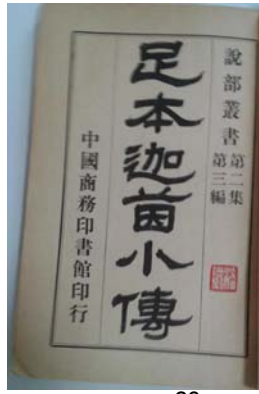 說部叢書
第二集
第三編
足本迦茵小傳
中國商務印書館印行